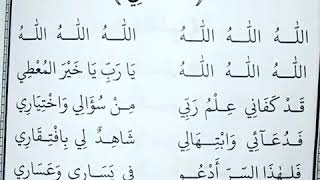 اللهُ اللهُ اللهُ اللهُ اللهُ اللهُ
اللهُ اللهُ اللهُ يَا رَبِّ يَا خَيْرَ الْمُعْطِي
قَدْ كَفَانِي عِلْمُ رَبِّي مِنْ سُؤَالِي وَاخْتِيَارِي
فَدُعَآئِي وَابْتِهَالِي شَاهِدٌ لِي بِافْتِقَارِي
فَلِهٰذَا السِّرِّ أَدْعُو فِي يَسَارِي وَعَسَارِي